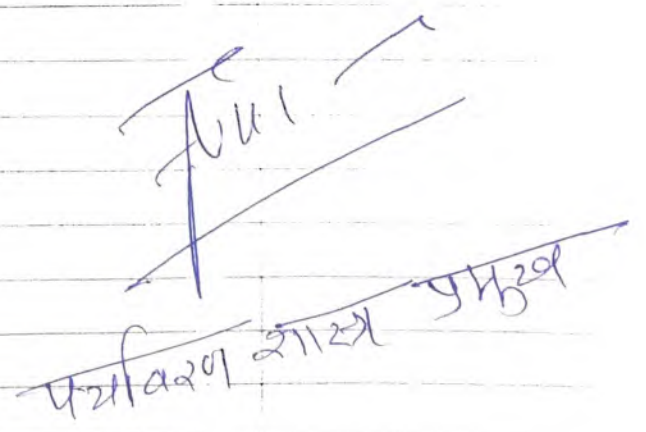 पर्यावरण शास्त्र प्रमुख